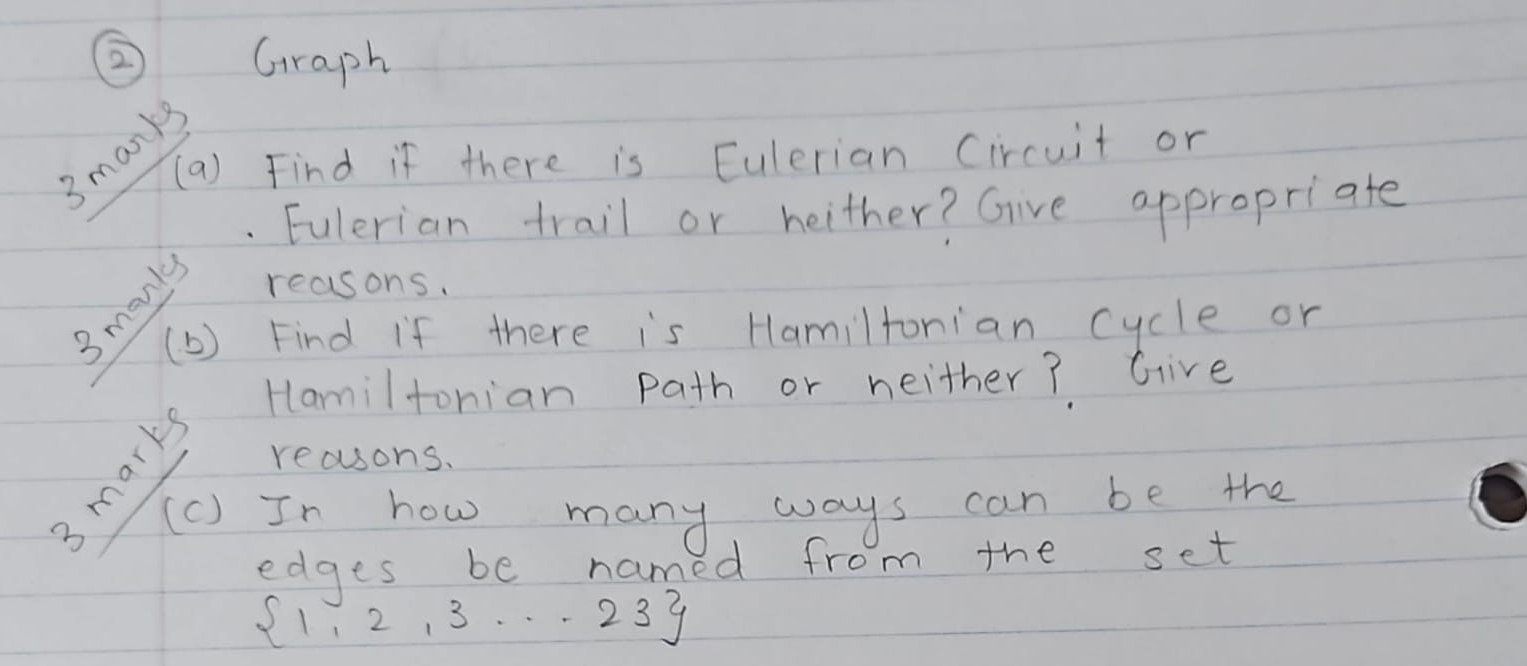 ② Graph
3 marks (a) Find if there is Eulerian Circuit or
. Eulerian trail or neither? Give appropriate
reasons.
3 marks (b) Find if there is Hamiltonian cycle or
Hamiltonian Path or neither? Give
reasons.
3 marks (c) In how many ways can be the
edges be named from the set
{1, 2, 3 . . . 23}